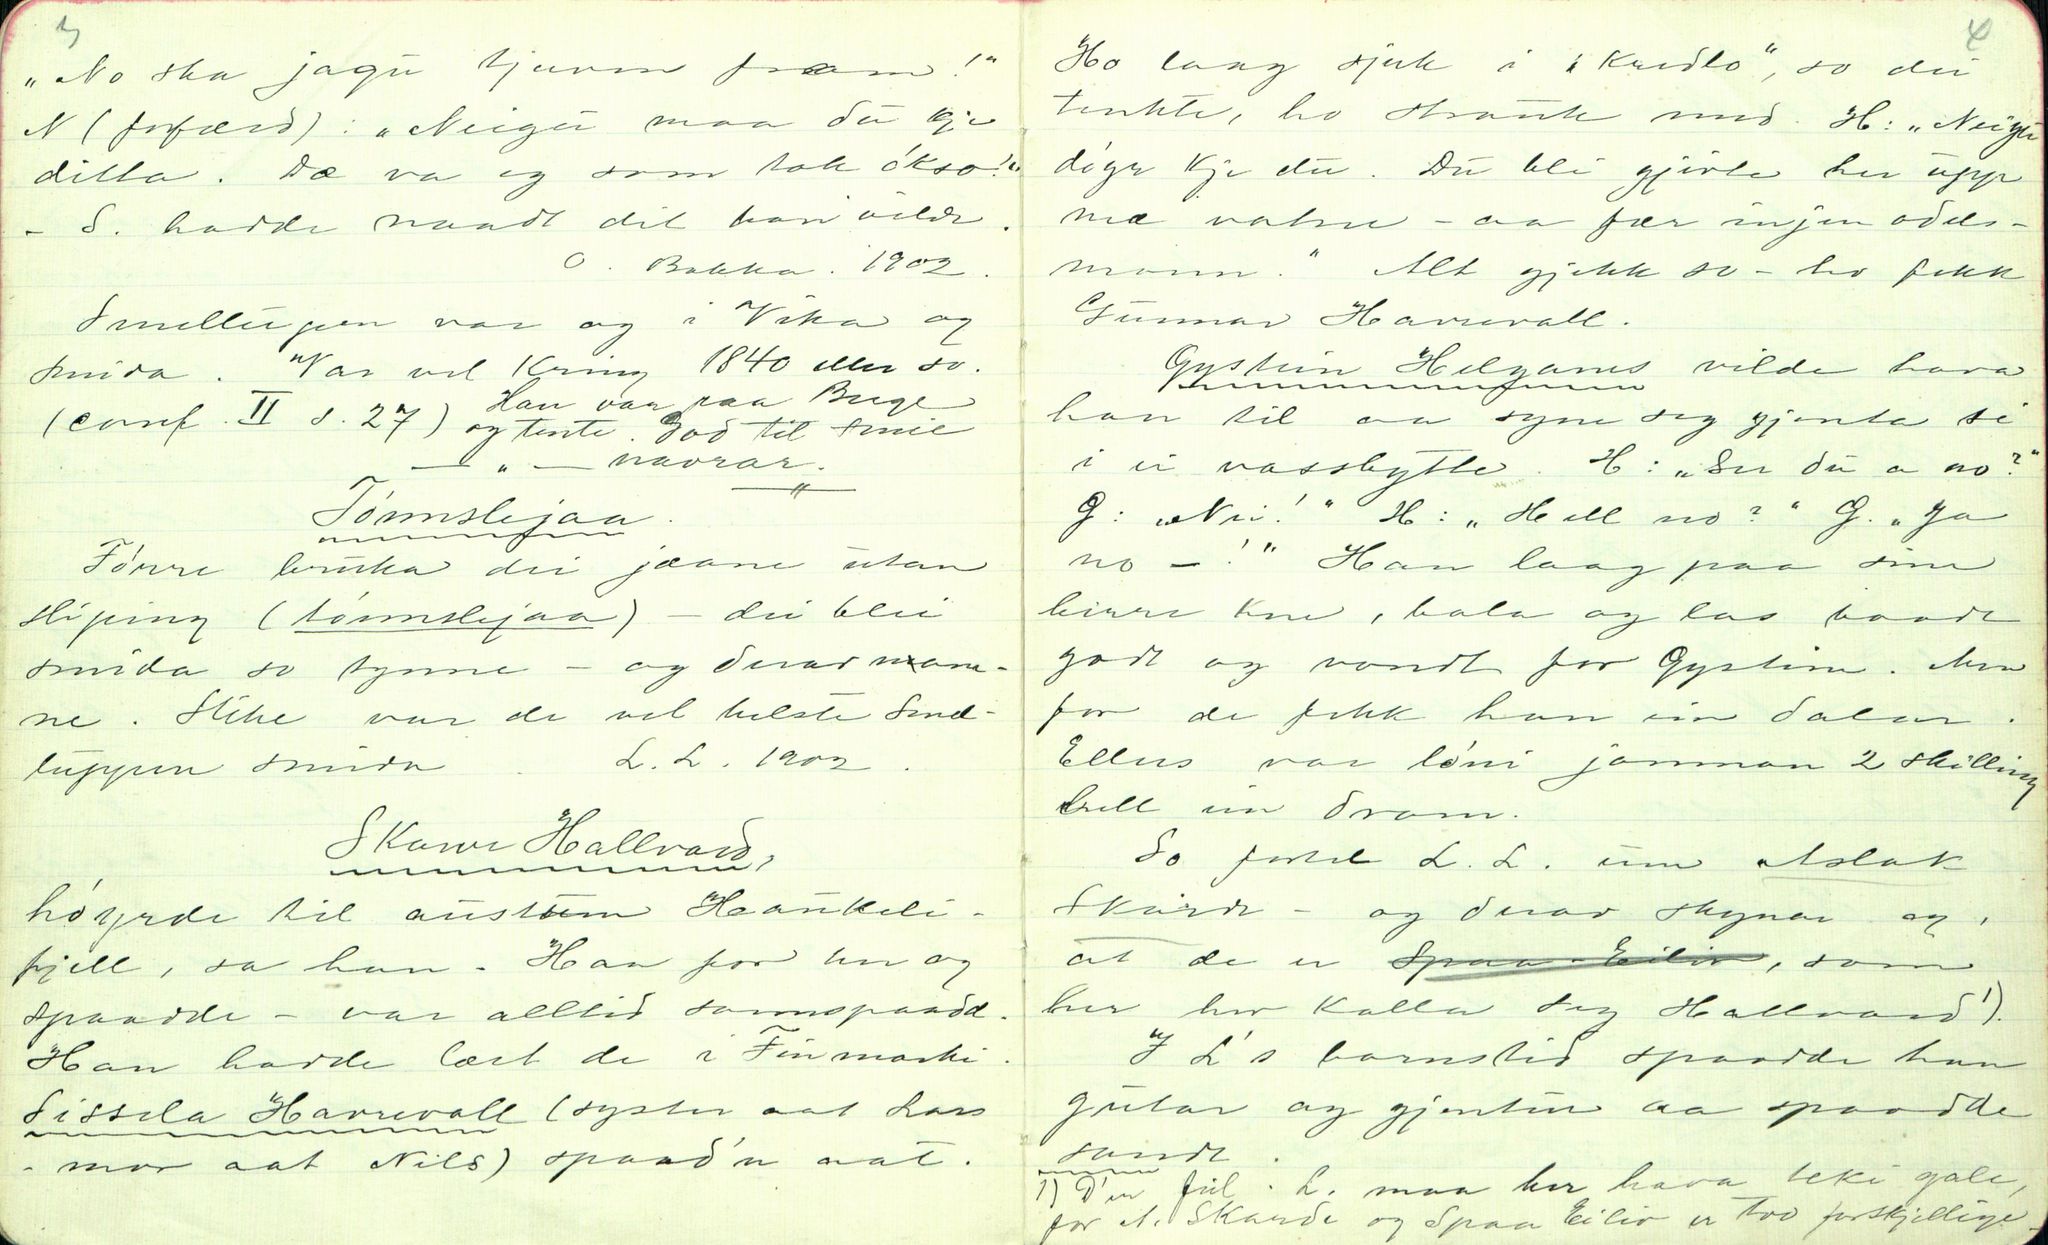 3
"No ska jagu tjuven fram!"
N (forfærd): "Neigu maa du kje
ditta. Dæ va eg som tok ókso!"
- S. hadde naadt dit han vilde.
O. Bakka. 1902.
Smeltuppen var og i Vika og
smida. Var vel kring 1840 eller so.
(conf. II s. 27) Han var paa Berge
og tente. God til smie
— " — navrar.
Tónnsljaa.
Fórre bruka dei jaane utan
sliping (tónnsljaa) – dei blei
smida so tynne – og derav namn-
ne. Slike var de vel helste Smel-
tuppen smida. L. L. 1902.
Skarve Hallvard,
hóyrde til austum Haukeli-
fjell, sa han. Han for um og
spaadde – var alltid sannspaadd.
Han hadde lært de i Finmarki.
Sissela Havrevoll (syster aat Lars
- mor aat Nils) spaad'n aat.
4
Ho laag sjuk i "kredlo", so dei
tenkte, ho strauk med. H: "Neigu
dóyr kje du. Du bli gjivte her upp
mæ vatne – aa fær injen odels-
mann." Alt gjekk so – ho fekk
Gunnar Havrevoll.
Gystein Helganes vilde hava
han til aa syne seg gjenta si
i ei vassbytte. H: "Ser du a no?"
G: "Nei!" H: "Hell no?" G. "Ja
no –!" Han laag paa sine
birre kne, bala og las baade
godt og vondt for Gystein. Men
for de fekk han ein dalar.
Ellers var lóni jamnan 2 skilling
hell ein dram.
So fortel L. L. um Aslak
Skarde – og derav skynar eg,
at de er Spaa-Eiliv, som
her hev kalla seg Hallvard 1).
I L's barnstid spaadde han
gutar og gjentur aa spaadde
sandt.
1) D'er feil. L. maa her hava teki gale,
for A. Skarde og Spaa Eiliv er tvo forskjellige.